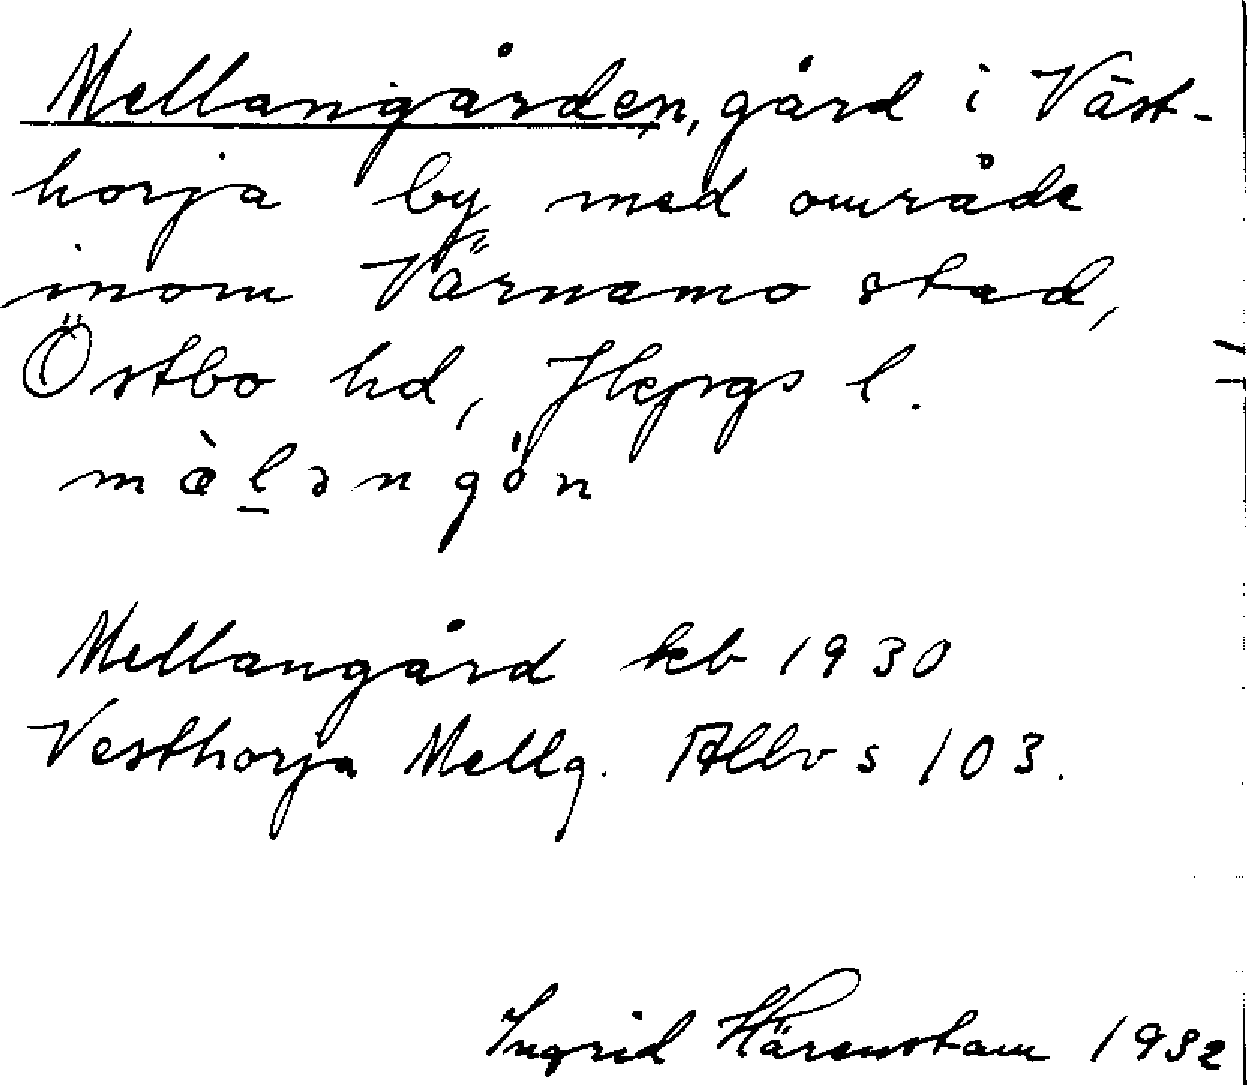 Mellangården, gård i Väst-
horja by med område
inom Värnamo stad,
Östbo hd, Jkpgs l.
mæ̀l̲ən gön
Mellangård kb 1930
Vesthorja Mellg. Allv s 103.
Ingrid Härenstam 1932